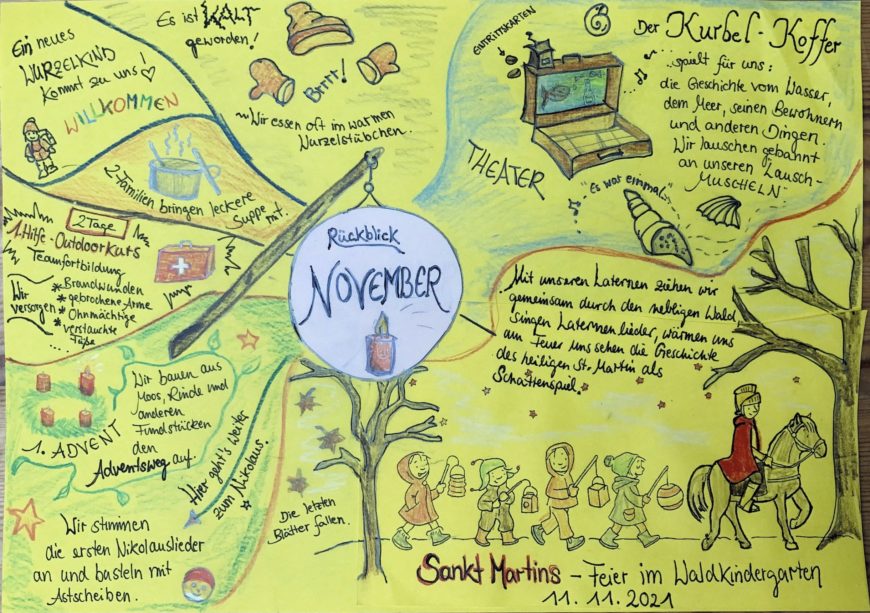 Ein neues
WURZELKIND
kommt zu uns!
WILLKOMMEN
Es ist KALT
geworden!
Brrr!
~Wir essen oft im warmen
Wurzelstübchen.
2-Familien bringen leckere
Suppe mit.
2 Tage
1. Hilfe-Outdoorkurs
Teamfortbildung
Wir
versorgen
* Brandwunden
* gebrochene Arme
* Ohnmächtige
* verstauchte
Füße
Rückblick
NOVEMBER
EINTRITTSKARTEN
THEATER
Der Kurbel-Koffer
spielt für uns:
die Geschichte vom Wasser,
dem Meer, seinen Bewohnern
und anderen Dingen.
Wir lauschen gebannt
an unseren "Lausch-
MUSCHELN"
"Es war einmal..."
Mit unseren Laternen ziehen wir
gemeinsam durch den nebligen Wald,
singen Laternenlieder, wärmen uns
am Feuer uns sehen die Geschichte
des heiligen St. Martin als
Schattenspiel.
1. ADVENT
Wir bauen aus
Moos, Rinde und
anderen
Fundstücken
den
Adventsweg auf.
Hier geht's weiter
zum Nikolaus.
Wir stimmen
die ersten Nikolauslieder
an und basteln mit
Astscheiben.
Die letzten
Blätter fallen.
Sankt Martins - Feier im Waldkindergarten
11.11.2021